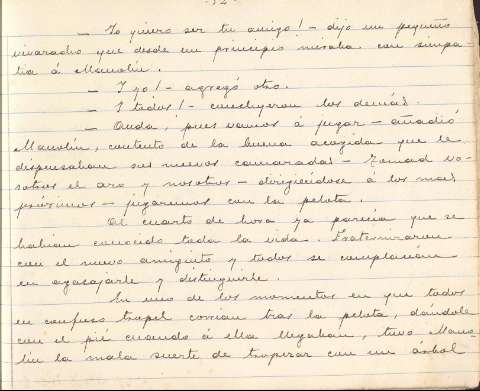 - 52 -
- Yo quiero ser tu amigo! - dijo un pequeño
vivaracho que desde un principio miraba con simpa-
tia á Manolín.
- Y yo! - agregó otro.
- Y todos! - concluyeron los demás.
- Anda, pues vamos á jugar - añadió
Manolín, contento de la buena acogida que le
dispensaban sus nuevos camaradas - Tomad vo-
sotros el aro y nosotros - dirigiéndose á los mas
próximos - jugaremos con la pelota.
Al cuarto de hora ya parecía que se
habian conocido toda la vida. Fraternizaron
con el nuevo amiguito y todos se complacían
en agasajarle y distinguirle.
En uno de los momentos en que todos
en confuso tropel corrian tras la pelota, dándole
con el pié cuando á ella llegaban, tuvo Mano-
lin la mala suerte de tropezar con un árbol